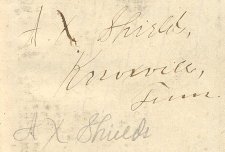 A. X Shields,
Knoxville,
Tenn.
A X Shields